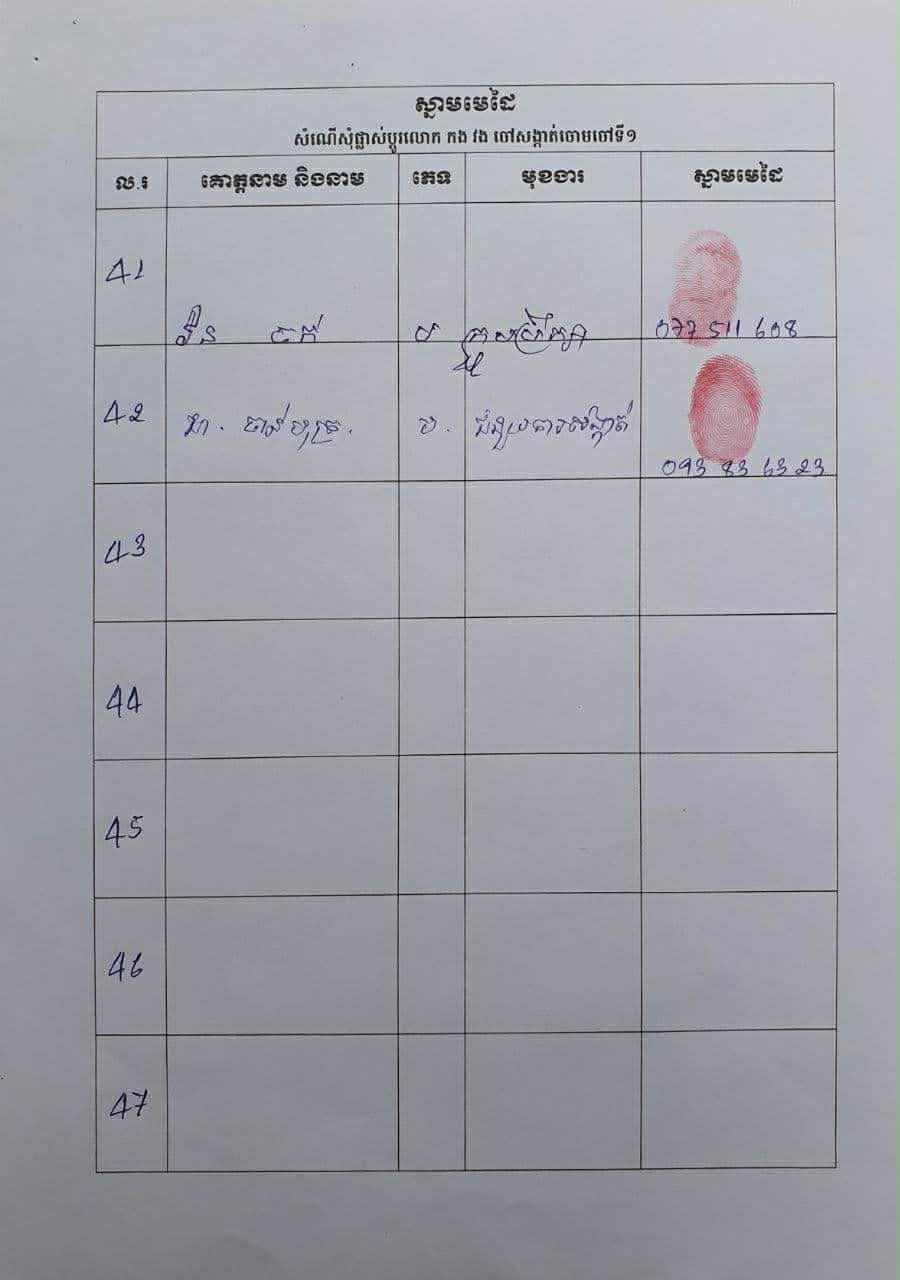 ស្នាមមេដៃ
សំណើសុំផ្លាស់ប្តូរលោក កង វង ចៅសង្កាត់ចោមចៅទី១
ល.រ គោត្តនាម និងនាម ភេទ មុខងារ ស្នាមមេដៃ
41 ប ក្រុមប្រឹក្សា 077 511 608
42 ប. 093 83 63 23
43
44
45
46
47